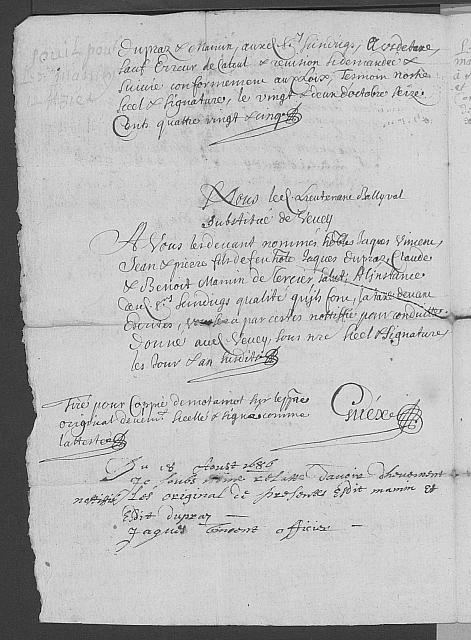 dupraz & Mamin, aux Srs Jeindrigs,
sauf Erreur de Calcul & revision si demandée &
suivre conformement aux Loix, Tesmoin nostre
seel & signature, le vingt & deux d'octobre seize
Cents quatre vingt & cinq
Nous le Lieutenant Ballyval
substitué de Vevey
A Vous les devant nommés hobles Jaques Vincent
Jean & pierre fils de feu hote Jaques dupraz, Claude
& Benoit Mamin de Tercier, salut; A l'instance
des Srs Jeindrigs qualité qu'ils font, la taxe devant
Escritte, vous sera par cestes nottifiée pour conduitte
donné au Vevey, sous nre seel & signature
les Jour & an susdits
Tiré pour Coppie de mot a mot sur le pre
original deuement seellé & signé comme
l'atteste
Du 18 Aoust 1686
Je sous signé relate d'avoir dheuement
nottifié les original de presentes Edit mamin et
Edit dupraz
Jaques officier